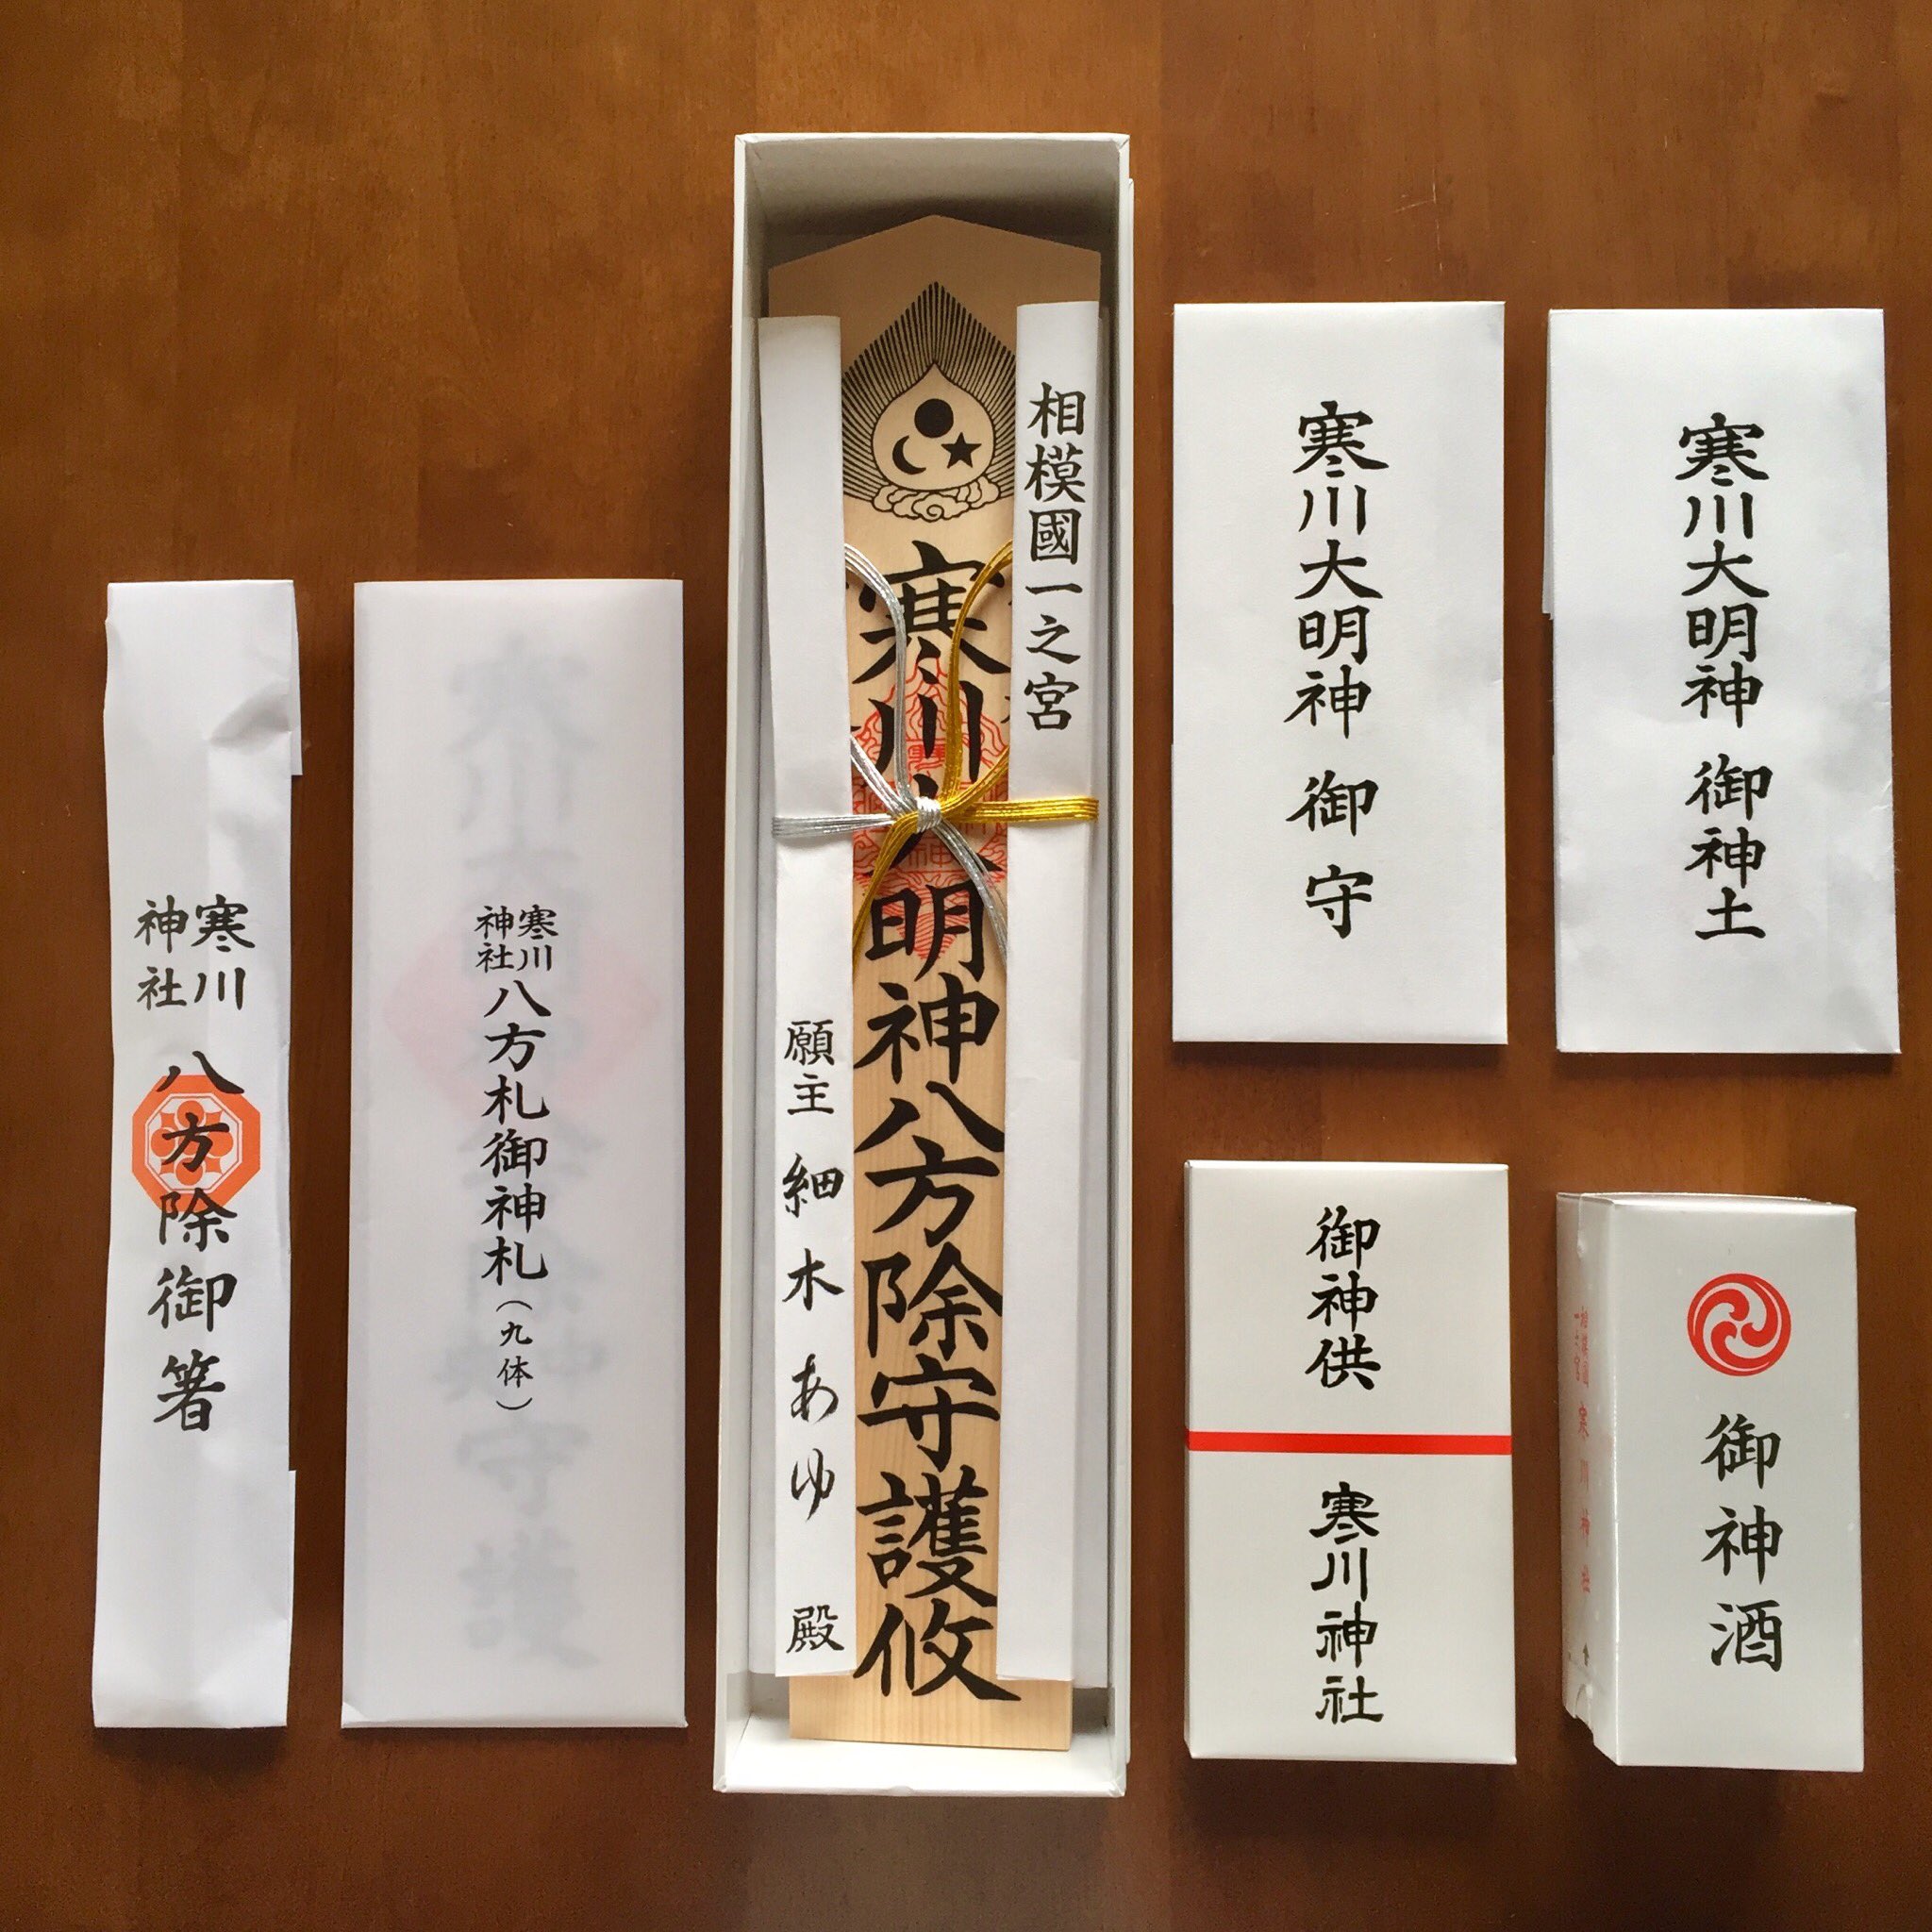 寒川神社 八方除御箸
寒川神社八方札御神札(九体)
相模國一之宮
寒川大明神八方除守護攸
願主 細木あゆ 殿
寒川大明神 御守
寒川大明神 御神土
御神供
寒川神社
御神酒
相模國一之宮 寒川神社